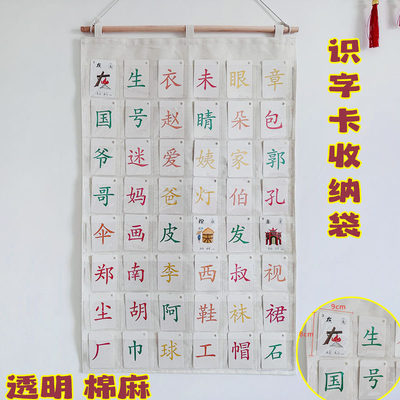 识字卡收纳袋
左 生 衣 未 眼 章
国 号 赵 睛 朵 包
爷 迷 爱 姨 家 郭
哥 妈 爸 灯 伯 孔
伞 画 皮 发
郑 南 李 西 叔 视
尘 胡 阿 鞋 袜 裙
厂 巾 球 工 帽 石
透明 棉麻
9cm
左 生
国 号